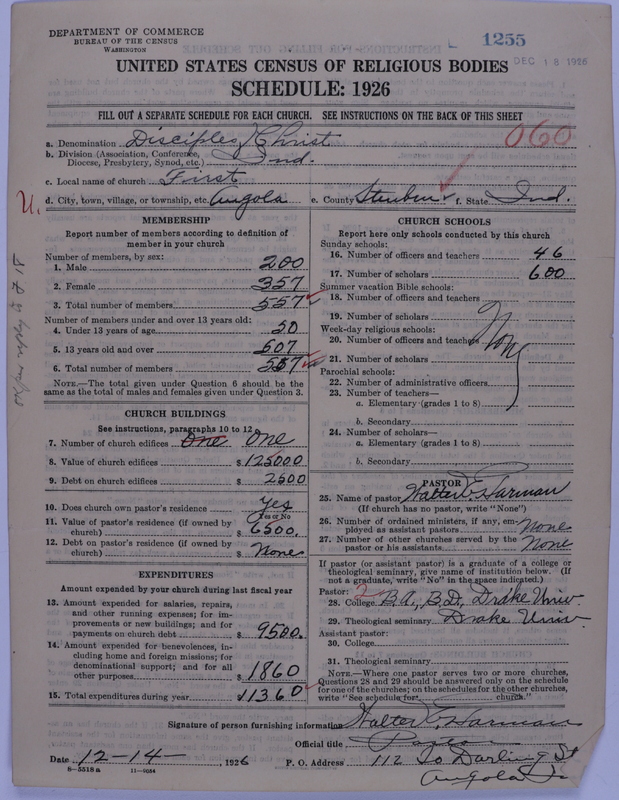 DEPARTMENT OF COMMERCE
BUREAU OF THE CENSUS
WASHINGTON
1255
DEC 18 1926
UNITED STATES CENSUS OF RELIGIOUS BODIES
SCHEDULE: 1926
FILL OUT A SEPARATE SCHEDULE FOR EACH CHURCH. SEE INSTRUCTIONS ON THE BACK OF THIS SHEET
060
a. Denomination Disciples of Christ
b. Division (Association, Conference, Diocese, Presbytery, Synod, etc.) Ind.
c. Local name of church First
U. d. City, town, village, or township, etc. Angola e. County Steuben f. State Ind.
MEMBERSHIP
Report number of members according to definition of member in your church
Number of members, by sex:
1. Male 200
2. Female 357
3. Total number of members 557
Number of members under and over 13 years old:
4. Under 13 years of age 50
5. 13 years old and over 507
6. Total number of members 557
NOTE.—The total given under Question 6 should be the same as the total of males and females given under Question 3.
CHURCH BUILDINGS
See instructions, paragraphs 10 to 12
7. Number of church edifices One One
8. Value of church edifices $ 125000
9. Debt on church edifices $ 2500
10. Does church own pastor's residence Yes
Yes or No
11. Value of pastor's residence (if owned by church) $ 6500.
12. Debt on pastor's residence (if owned by church) $ None
EXPENDITURES
Amount expended by your church during last fiscal year
13. Amount expended for salaries, repairs, and other running expenses; for improvements or new buildings; and for payments on church debt $ 9500.
14. Amount expended for benevolences, including home and foreign missions; for denominational support; and for all other purposes $ 1860
15. Total expenditures during year 11360
CHURCH SCHOOLS
Report here only schools conducted by this church
Sunday schools:
16. Number of officers and teachers 46
17. Number of scholars 600
Summer vacation Bible schools:
18. Number of officers and teachers
19. Number of scholars
Week-day religious schools:
20. Number of officers and teachers None
21. Number of scholars
Parochial schools:
22. Number of administrative officers
23. Number of teachers—
a. Elementary (grades 1 to 8)
b. Secondary
24. Number of scholars—
a. Elementary (grades 1 to 8)
b. Secondary
PASTOR
25. Name of pastor Walter E. Harman
(If church has no pastor, write "None")
26. Number of ordained ministers, if any, employed as assistant pastors None
27. Number of other churches served by the pastor or his assistants None
If pastor (or assistant pastor) is a graduate of a college or theological seminary, give name of institution below. (If not a graduate, write "No" in the space indicated.)
Pastor: 2
28. College B.A., B.D., Drake Univ.
29. Theological seminary Drake Univ.
Assistant pastor:
30. College
31. Theological seminary
NOTE.—Where one pastor serves two or more churches, Questions 28 and 29 should be answered only on the schedule for one of the churches; on the schedules for the other churches, write "See schedule for church."
Signature of person furnishing information Walter E. Harman
Official title Pastor
Date 12-14-, 1926 P. O. Address 112 So Darling St
Angola
8-5518a 11-9054